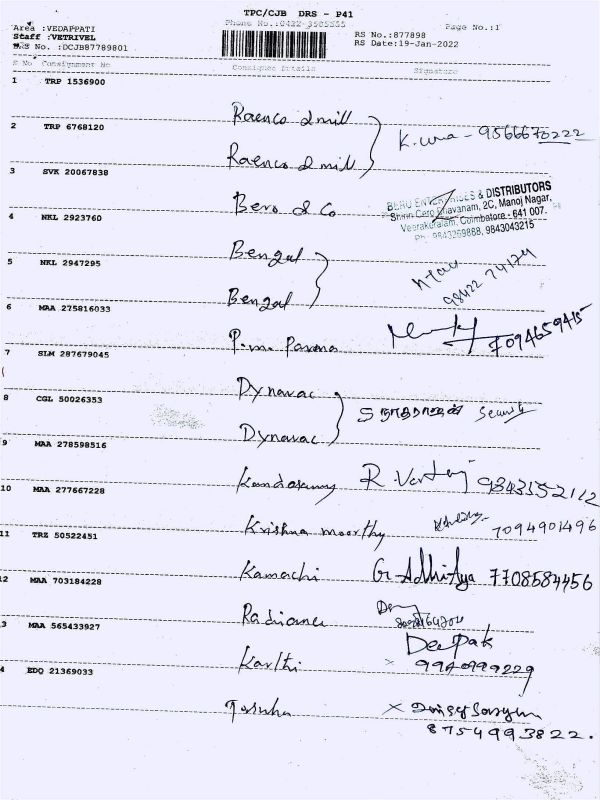 TPC/CJB DRS - P41
Area :VEDAPPATI
Phone No.:0422-3505555
Page No.:1
Staff :VETRIVEL
RS No. :DCJB87789801
RS No.:877898
RS Date:19-Jan-2022
S No Consignment No Consignee Details Signature
1 TRP 1536900
Raenco 2 mill
K. - 9566670222
2 TRP 6768120
Raenco 2 mill
3 SVK 20067838
Bero & Co
BERO ENTERPRISES & DISTRIBUTORS
Cero Bhavanam, 2C, Manoj Nagar,
Veerakeralam, Coimbatore - 641 007.
Ph : 9843269888, 9843043215
4 NKL 2923760
Bengal
98422 74174
5 NKL 2947295
Bengal
6 MAA 275816033
P.m. Parma
7094659415
7 SLM 287679045
Dynavac
8 CGL 50026353
Dynavac
9 MAA 278598516
Kandasamy
R. 9843552112
10 MAA 277667228
Krishna moorthy
7094901496
11 TRZ 50522451
Kamachi
G. Adhitya 7708584456
12 MAA 703184228
Radiance
13 MAA 565433927
Karthi
Deepak
x 9940999229
14 EDQ 21369033
x
8754993822.